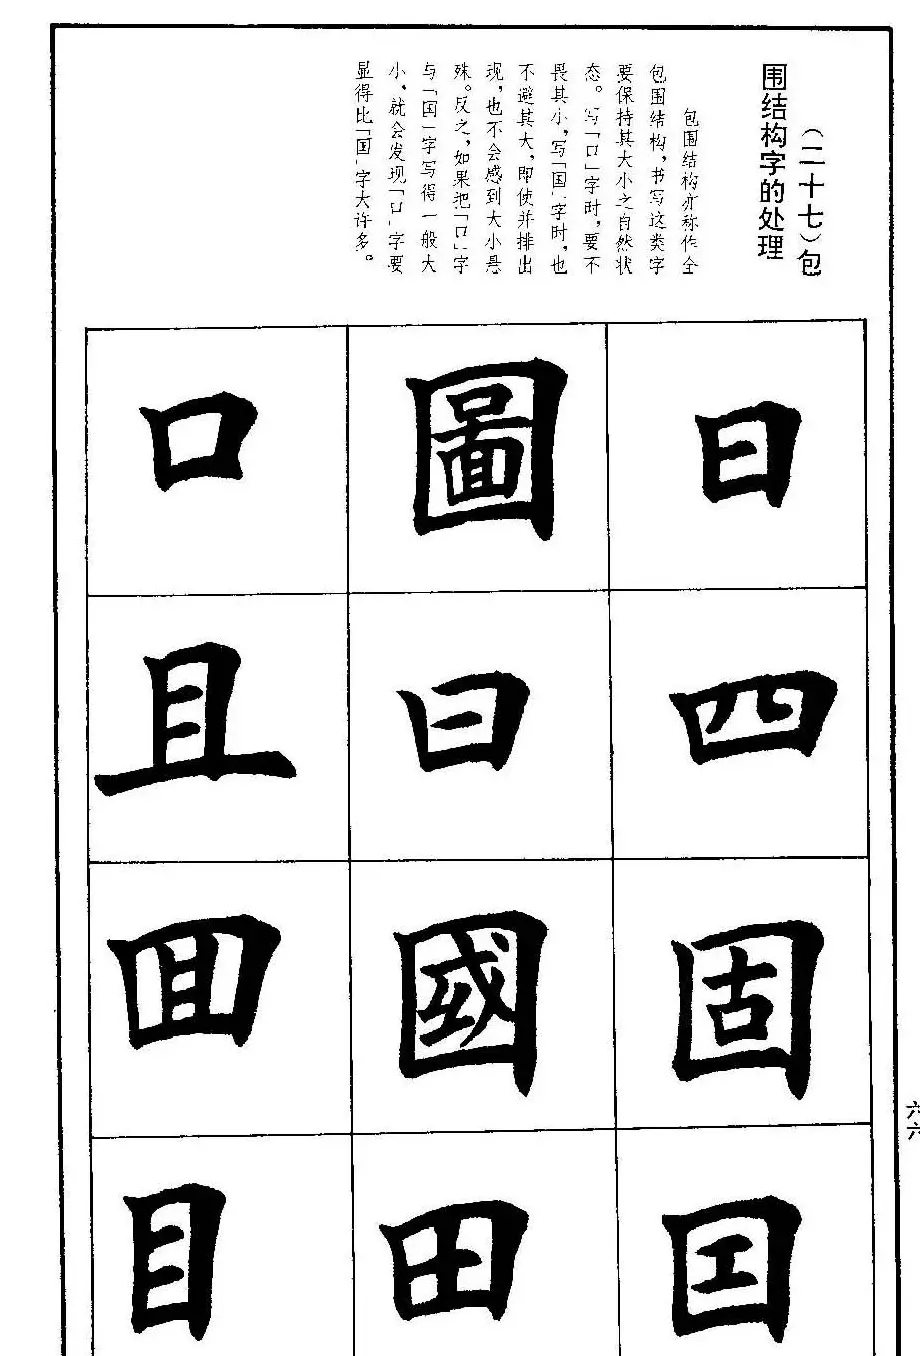 （二十七）包
围结构字的处理
包围结构亦称作全
包围结构，书写这类字
要保持其大小之自然状
态。写「口」字时，要不
畏其小，写「国」字时，也
不避其大，即使并排出
现，也不会感到大小悬
殊。反之，如果把「口」字
与「国」字写得一般大
小，就会发现「口」字要
显得比「国」字大许多。
日
四
固
囯
圖
曰
國
田
口
且
囬
目
六六